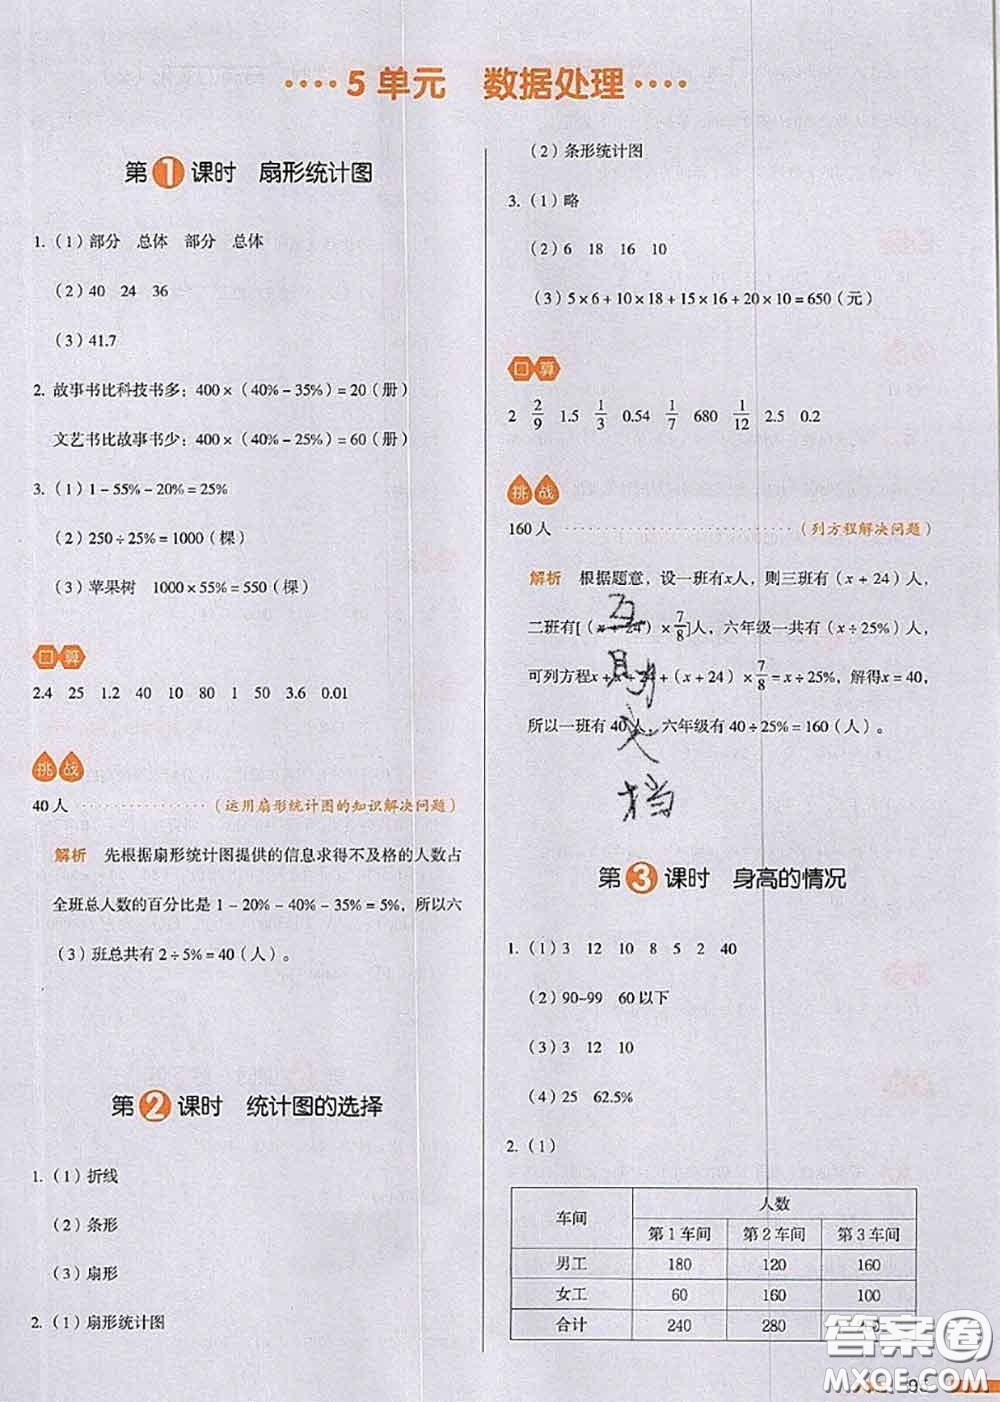 5 单元　数据处理
第1课时　扇形统计图
1.（1）部分　总体　部分　总体
（2）40　24　36
（3）41.7
2. 故事书比科技书多：400×（40%－35%）＝20（册）
文艺书比故事书少：400×（40%－25%）＝60（册）
3.（1）1－55%－20%＝25%
（2）250÷25%＝1000（棵）
（3）苹果树　1000×55%＝550（棵）
口算
2.4　25　1.2　40　10　80　1　50　3.6　0.01
挑战
40人 ················（运用扇形统计图的知识解决问题）
解析　先根据扇形统计图提供的信息求得不及格的人数占
全班总人数的百分比是 1－20%－40%－35%＝5%，所以六
（3）班总共有 2÷5%＝40（人）。
第2课时　统计图的选择
1.（1）折线
（2）条形
（3）扇形
2.（1）扇形统计图
（2）条形统计图
3.（1）略
（2）6　18　16　10
（3）5×6＋10×18＋15×16＋20×10＝650（元）
口算
2　2/9　1.5　1/3　0.54　1/7　680　1/12　2.5　0.2
挑战
160人 ···························（列方程解决问题）
解析　根据题意，设一班有x人，则三班有（x＋24）人，
二班有[（x＋24）×7/8]人，六年级一共有（x÷25%）人，
可列方程x＋x＋24＋（x＋24）×7/8＝x÷25%，解得x＝40，
所以一班有 40 人，六年级有 40÷25%＝160（人）。
第3课时　身高的情况
1.（1）3　12　10　8　5　2　40
（2）90~99　60以下
（3）3　12　10
（4）25　62.5%
2.（1）
车间　人数
第1车间　第2车间　第3车间
男工　180　120　160
女工　60　160　100
合计　240　280
答案圈
MXQE.COM